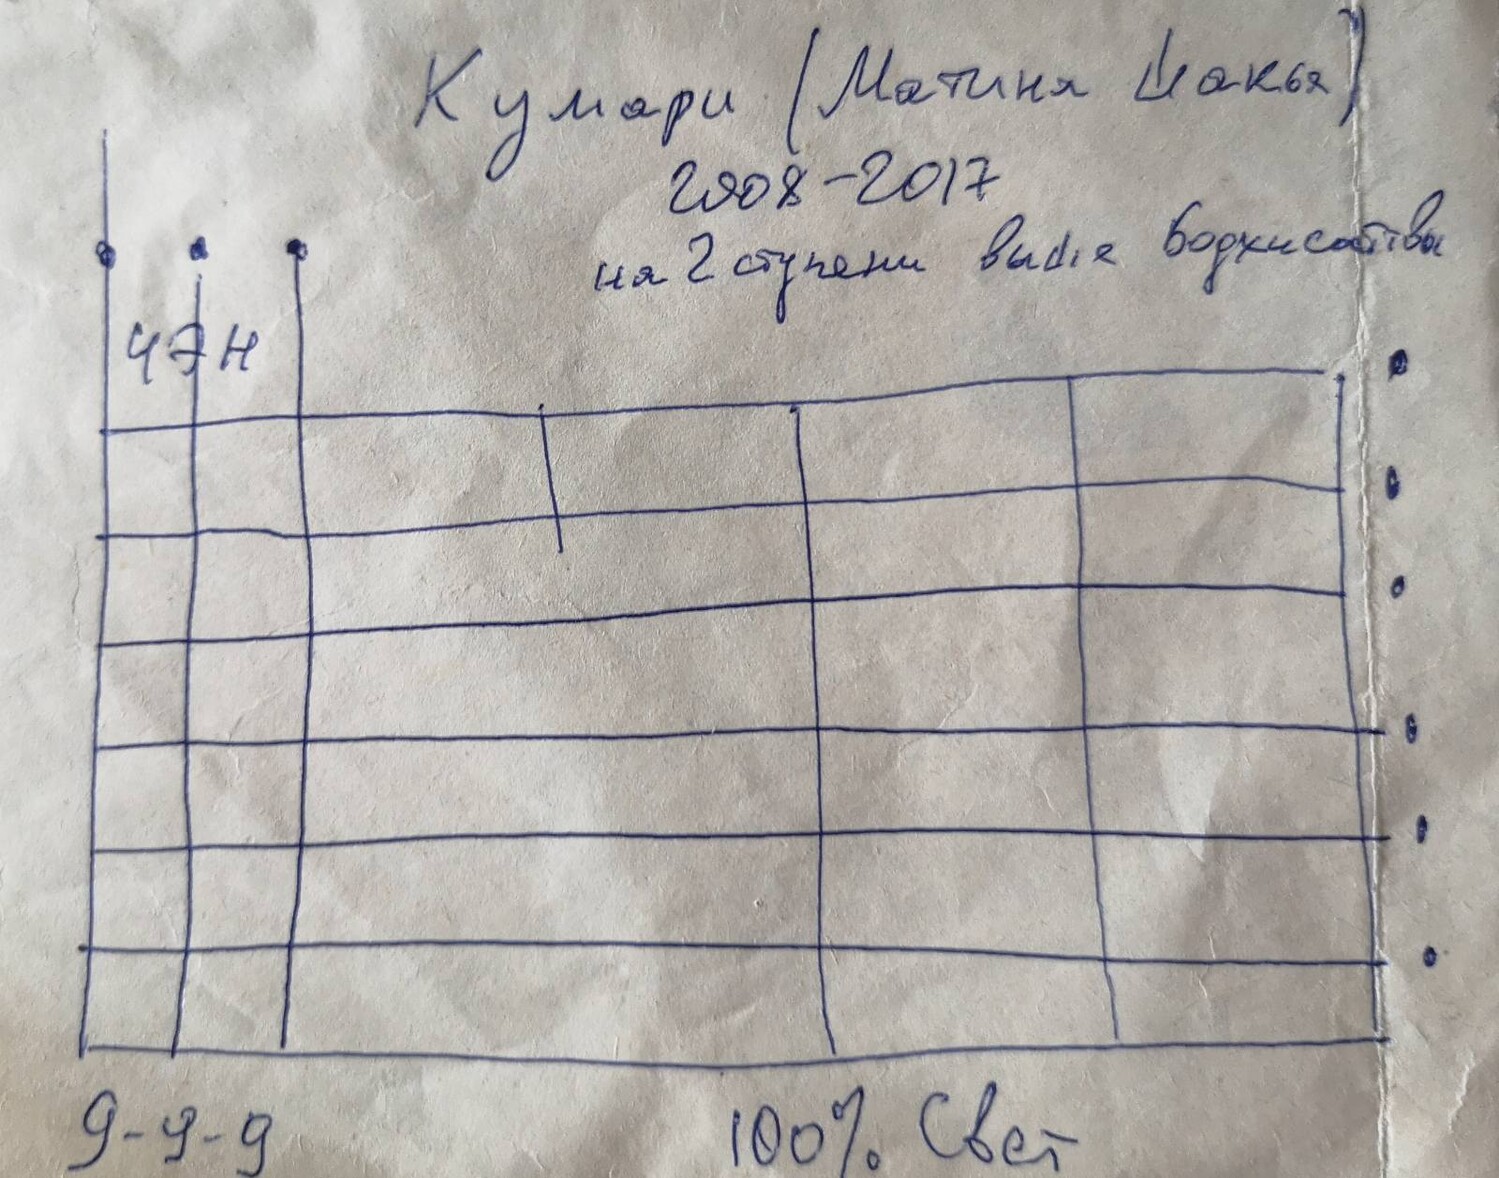 Кумари (Матина Шакья)
2008-2017
на 2 ступени выше Бодхисаттвы
ЧЭН
9-9-9
100% Свет